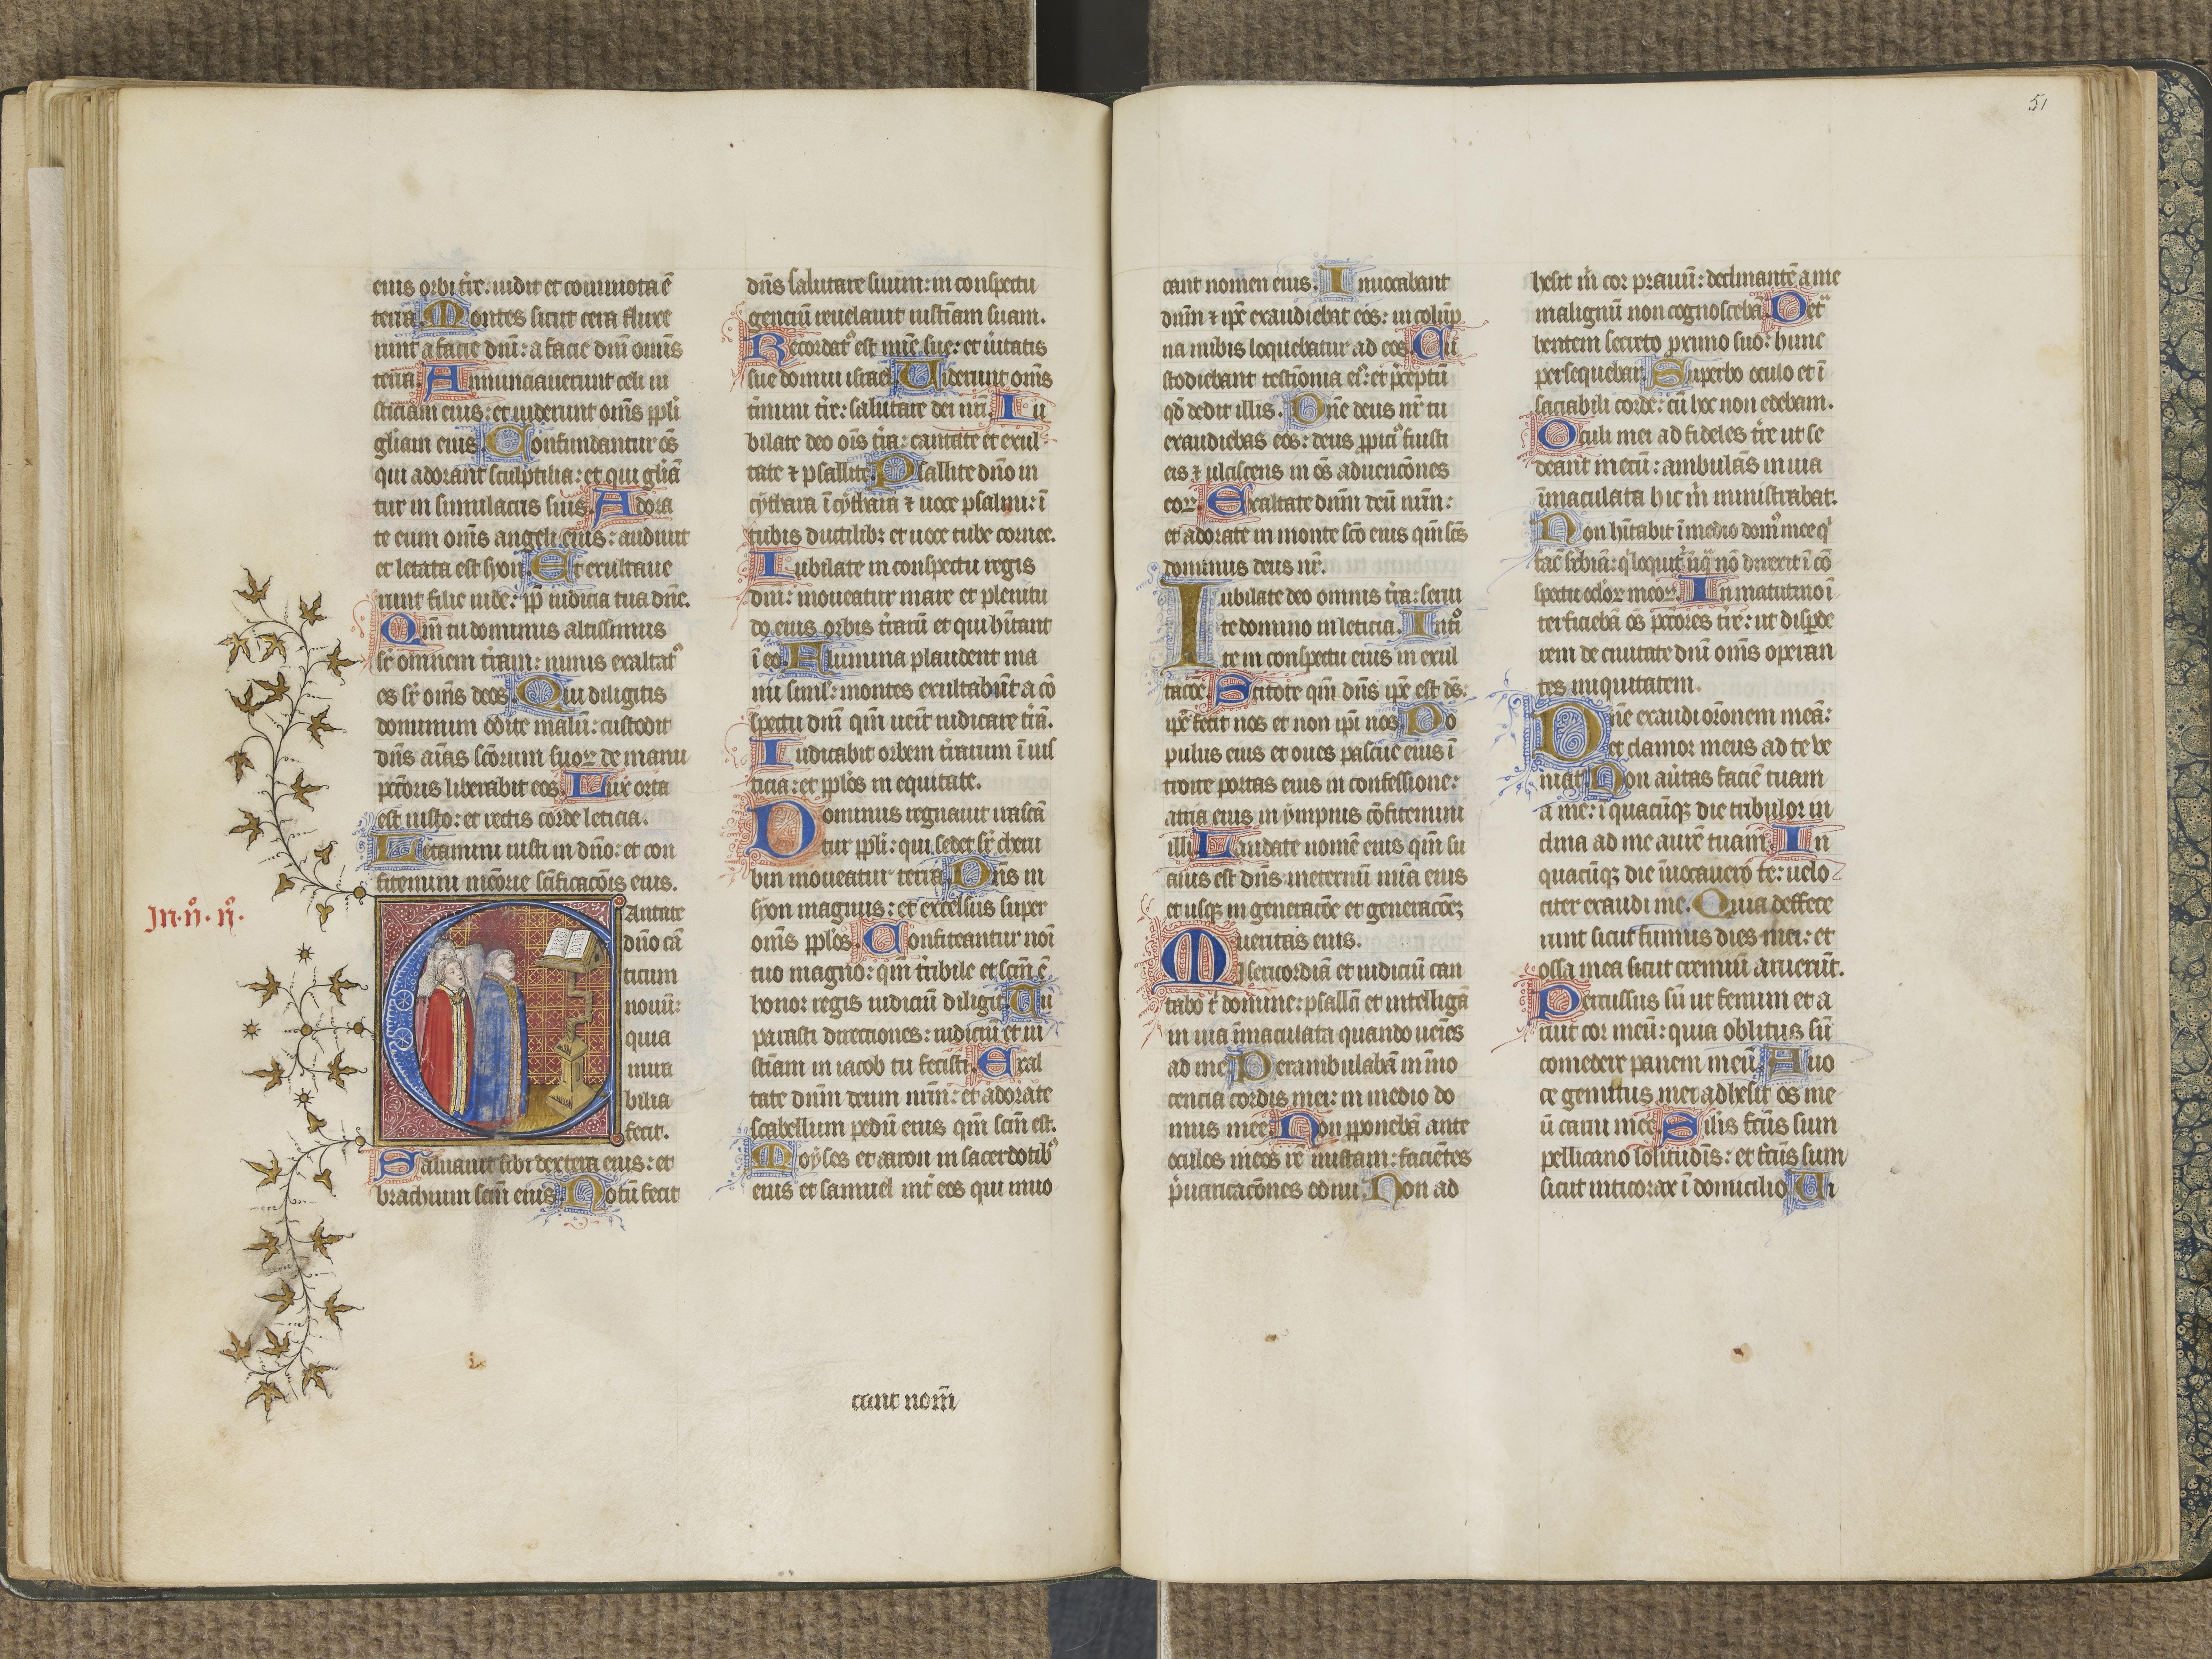 eius orbi tr̃e: uidit et com̃ota ẽ
terra. Montes sicut cera fluxe
runt a facie dnĩ: a facie dnĩ om̃is
terra. Annunciauerunt celi iu
sticiam eius: et uiderunt om̃s ppl̃i
gl̃iam eius. Confundantur õs
qui adorant sculptilia: et qui gl̃iã
tur in simulacris suis. Adora
te eum om̃s angeli eius: audiuit
et letata est syon. Et exultaue
runt filie iude: pp̃ iudicia tua dñe.
Qm̃ tu dominus altissimus
sr̃ omnem tr̃am: nimis exaltatꝰ
es sr̃ om̃s deos. Qui diligitis
dominum odite malũ: custodit
dñs aĩas sc̃orum suoꝝ de manu
pc̃toris liberabit eos. Lux orta
est iusto: et rectis corde leticia.
Letamini iusti in dño: et con
fitemini mẽorie sc̃ificacõis eius.
Jn·nͦ·nͦ.
Cantate
dño cã
ticum
nouũ:
quia
mira
bilia
fecit.
Saluauit sibi dextera eius: et
brachium sc̃m eius. Notũ fecit
dñs salutare suum: in conspectu
genciũ reuelauit iusticiam suam.
Recordatꝰ est mĩe sue: et ũitatis
sue domui israel. Uiderunt om̃s
t̃mini tr̃e: salutare dei nr̃i. Iu
bilate deo om̃s tr̃a: cantate et exul
tate ⁊ psallite. Psallite dño in
cythara ĩ cythara ⁊ uoce psalmi: ĩ
tubis ductilibꝫ et uoce tube cornee.
Iubilate in conspectu regis
dnĩ: moueatur mare et plenitu
do eius orbis tr̃arũ et qui hĩtant
ĩ eo. Flumina plaudent ma
nu simł: montes exultabũt a cõ
spectu dnĩ qm̃ uẽit iudicare tr̃ã.
Iudicabit orbem tr̃arum ĩ ius
ticia: et ppl̃os in equitate.
Dominus regnauit irascã
tur ppl̃i: qui sedet sr̃ cheru
bin moueatur terra. Dñs in
syon magnus: et excelsus super
om̃s ppl̃os. Confiteantur noĩ
tuo magno: qm̃ t̃ribile et sc̃m ẽ
honor regis iudiciũ diligit. Tu
parasti directiones: iudiciũ et iu
sticiam in iacob tu fecisti. Exal
tate dnm̃ deum nrm̃: et adorate
scabellum pedũ eius qm̃ sc̃m est.
Moyses et aaron in sacerdotibꝰ
eius et samuel int̃ eos qui inuo
cant nom̃
51
cant nomen eius. Inuocabant
dnm̃ ⁊ ip̃e exaudiebat eos: in colũp
na nubis loquebatur ad eos. Cu
stodiebant testim̃onia eiꝰ: et p̃ceptũ
qd̃ dedit illis. Dñe deus nr̃ tu
exaudiebas eos: deus ꝓpiciꝰ fuisti
eis ⁊ ulciscens in õs aduencões
eoꝝ. Exaltate dnm̃ deũ nrm̃:
et adorate in monte sc̃o eius qm̃ sc̃s
dominus deus nr̃.
Iubilate deo omnis tr̃a: serui
te domino in leticia. Introͥ
te in conspectu eius in exul
tacõe. Scitote qm̃ dñs ip̃e est dš:
ip̃e fecit nos et non ip̃i nos. Po
pulus eius et oues pascue eius ĩ
troite portas eius in confessione:
atria eius in ympnis cõfitemini
illi. Laudate nomẽ eius qm̃ su
auis est dñs ineternũ mĩa eius
et usqꝫ in generacõe et generacõeꝫ
ueritas eius.
Misericordiã et iudiciũ can
tabo t̃ domine: psallã et intelligã
in uia ĩmaculata quando uẽies
ad me. Perambulabã in ĩno
cencia cordis mei: in medio do
mus mee. Non ꝓponebã ante
oculos meos rẽ iniustam: faciẽtes
p̃uaricacões odiui. Non ad
hesit m̃ cor prauũ: declinantẽ a me
malignũ non cognoscebã. Det̃
hentem secreto ꝓximo suo: hunc
persequebar. Superbo oculo et ĩ
saciabili corde: cũ hoc non edebam.
Oculi mei ad fideles tr̃e ut se
deant mecũ: ambulãs in uia
ĩmaculata hic m̃ ministrabat.
Non hĩtabit ĩ medio domꝰ mee qͥ
facͥ suꝑbiã: qͥ loquitͬ iniqͣ nõ direxit ĩ cõ
spectu ocl̃oꝝ meoꝝ. In matutino ĩ
terficiebã õs pc̃tores tr̃e: ut disꝑde
rem de ciuitate dnĩ om̃s operan
tes iniquitatem.
Dñe exaudi or̃onem meã:
et clamor meus ad te ve
niat. Non aũtas faciẽ tuam
a me: ĩ quacũqꝫ die tribulor in
clina ad me aurẽ tuam. In
quacũqꝫ die ĩuocauero te: uelo
citer exaudi me. Quia deffece
runt sicut fumus dies mei: et
ossa mea sicut cremiũ aruerũt.
Percussus sũ ut fenum et a
ruit cor meũ: quia oblitus sũ
comedere panem meũ. A uo
ce gemitus mei adhesit os me
ũ carni mee. Silis fc̃us sum
pellicano solitudĩs: et fc̃us sum
sicut niticorax ĩ domicilio. Ui